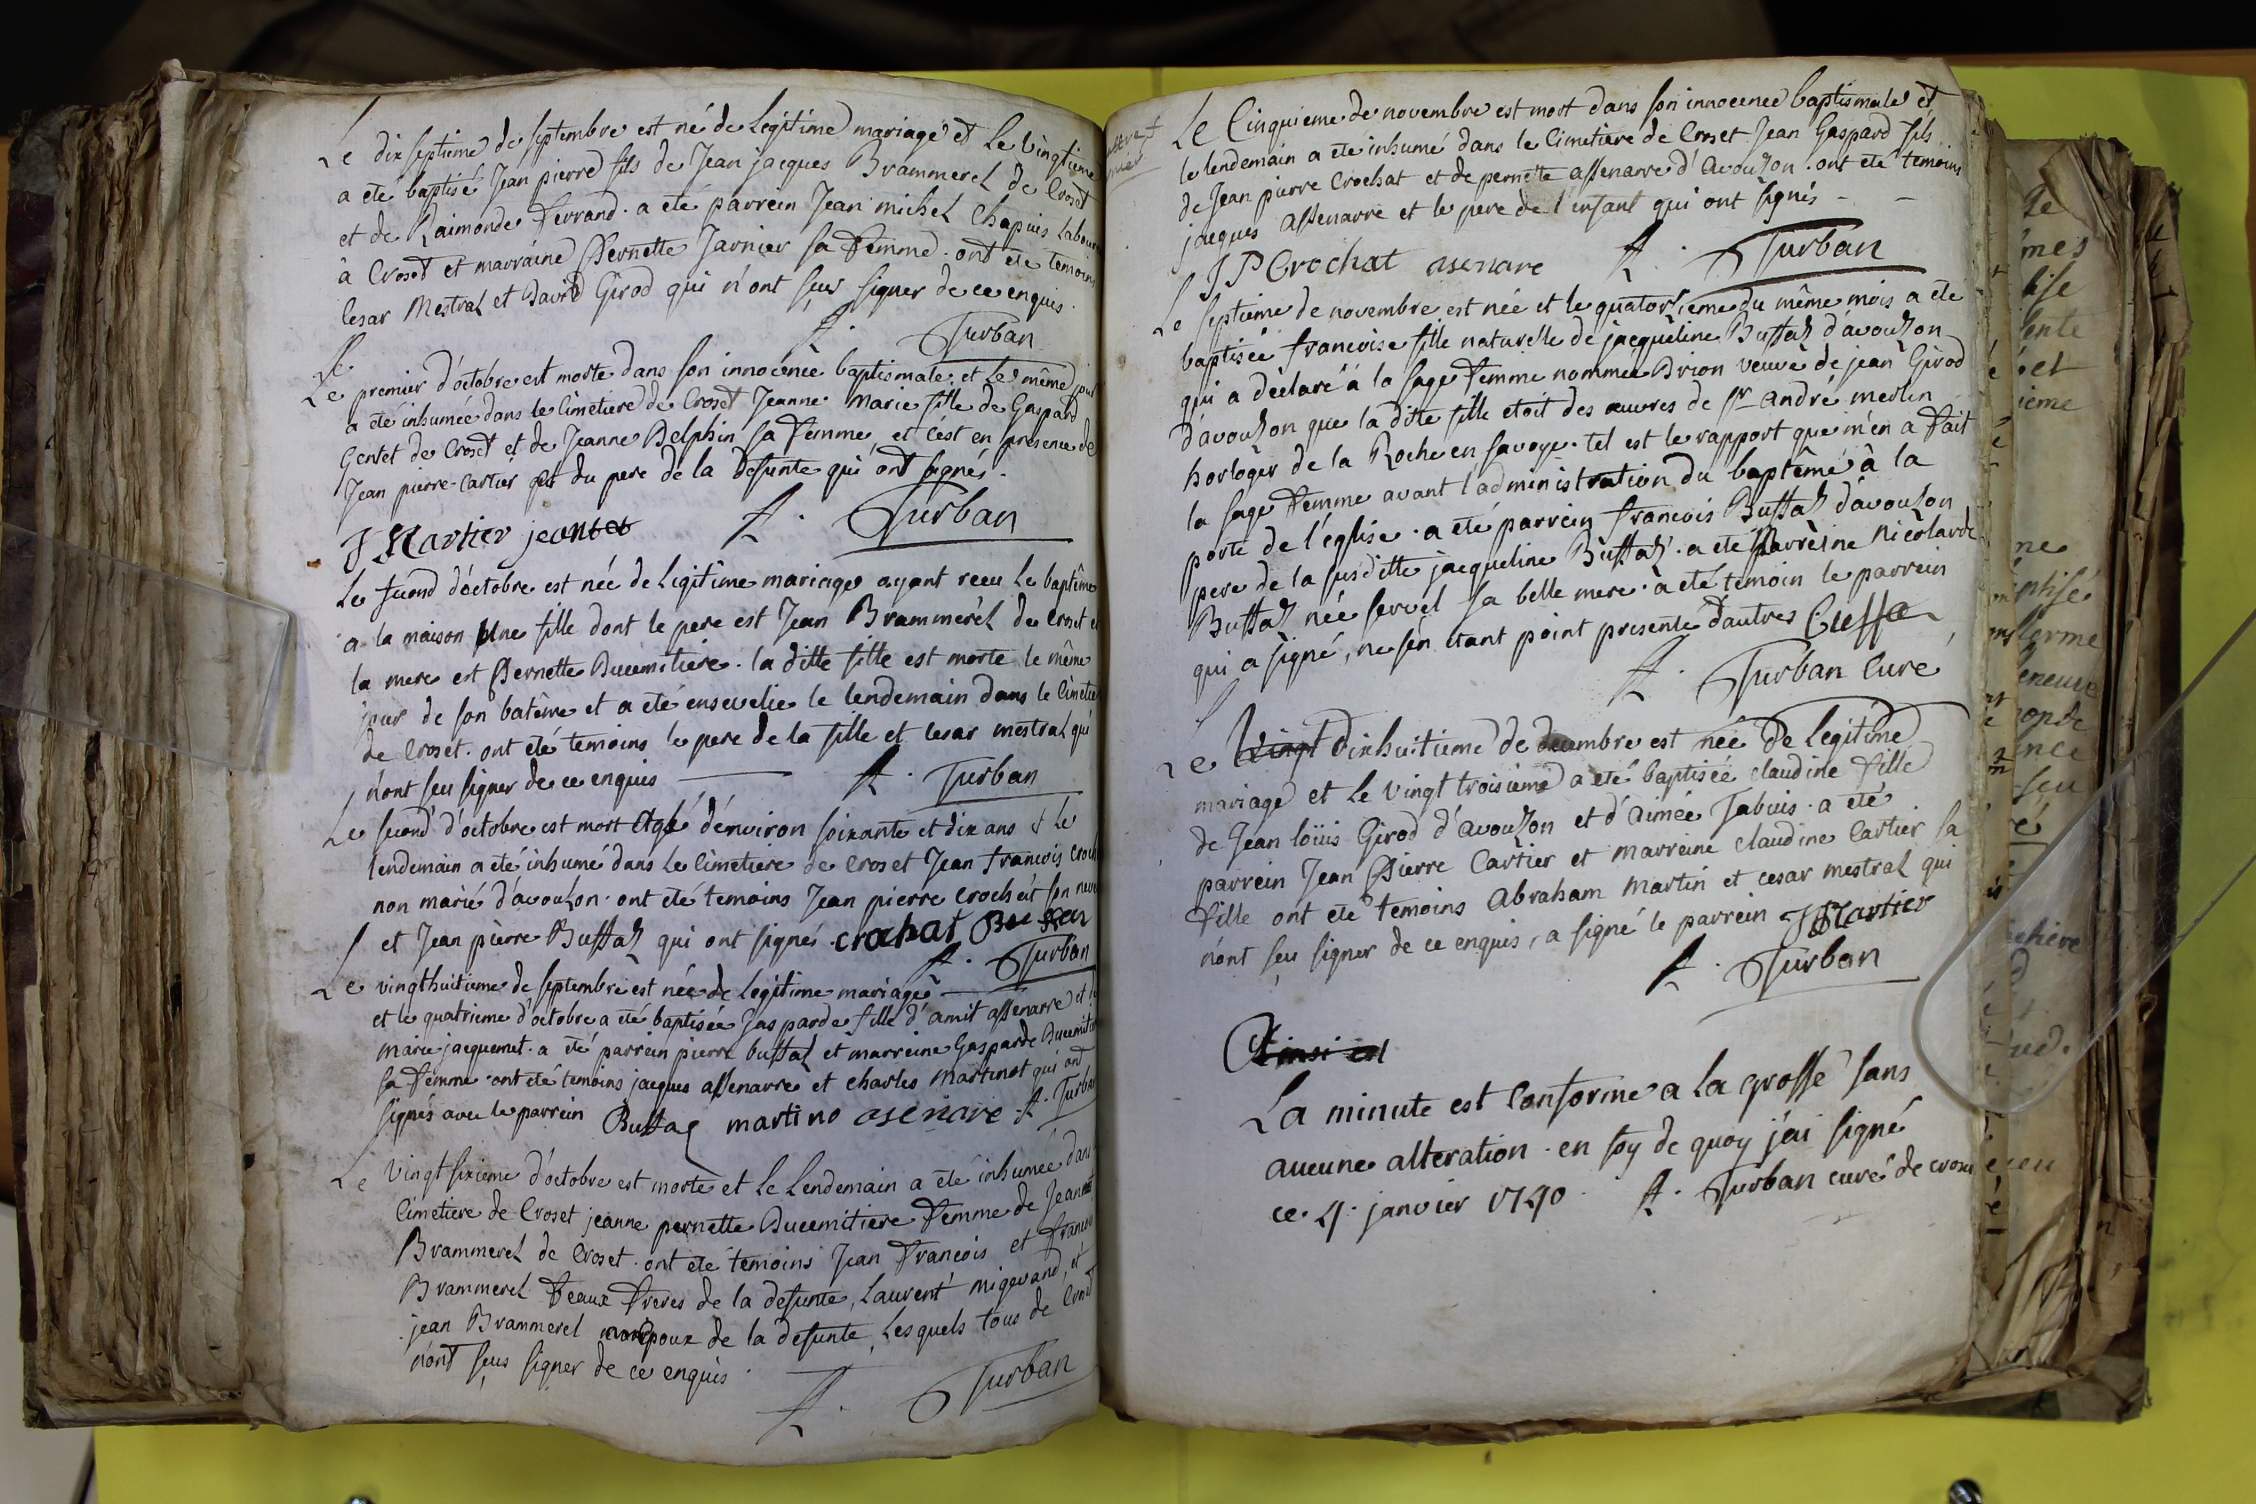 Le dix septieme de septembre est né de Legitime mariage et Le vingtieme
a eté baptisé Jean pierre fils de Jean jacques Brammerel de Croset
et de Raimonde ferrand. a eté parrein Jean michel Chapuis Labour
à Croset et marraine Pernette Jarnier sa femme. ont eté temoins
Cesar Mestral et David Girod qui n'ont sçus signer de ce enquis.
A. Turban
Le
Le premier d'octobre est morte dans son innocence baptismale et Le même jour
a eté inhumée dans le Cimetiere de Croset Jeanne Marie fille de Gaspard
Gentet de Croset et de Jeanne Delphin sa femme, et c'est en presence de
Jean pierre Cartier et du pere de la defunte qui ont signés.
J P Cartier jeantet A. Turban
Le second d'octobre est née de Legitime mariage ayant receu Le baptême
a la maison Une fille dont le pere est Jean Brammerel de Croset et
la mere est Pernette Ducemitiere. la ditte fille est morte le même
jour de son batême et a eté ensevelie le lendemain dans le Cimetie
de Croset. ont eté temoins le pere de la fille et Cesar mestral qui
n'ont sçu signer de ce enquis A. Turban
Le second d'octobre est mort Agé d'environ soixante et dix ans & Le
lendemain a eté inhumé dans Le Cimetiere de Croset Jean francois Croch
non marié d'avouzon. ont eté temoins Jean pierre Crochat son neve
et Jean pierre Buffaz qui ont signés. crochat Buffaz
A. Turban
Le vingthuitieme de septembre est née de Legitime mariage
et le quatrieme d'octobre a eté baptisée Gasparde fille d'amit assenarre et
marie jacquemet. a eté parrein pierre buffaz et marreine Gasparde Ducemiti
sa femme. ont eté temoins jacques assenarre et charles martinot qui ont
signés avec le parrein Buffaz martino asenare. A. Turban
Le vingt sixieme d'octobre est morte et Le Lendemain a eté inhumée dans
Cimetiere de Croset jeanne pernette Ducemitiere femme de Jean
Brammerel de Croset. ont eté temoins Jean francois et francois
Brammerel beaux freres de la defunte, Laurent migevand, et
jean Brammerel epoux de la defunte, Lesquels tous de Croset
n'ont sçus signer de ce enquis.
A. Turban
Le Cinquieme de novembre est mort dans son innocence baptismale et
le lendemain a eté inhumé dans le Cimetiere de Croset Jean Gaspard fils
de Jean pierre Crochat et de pernette assenarre d'avouzon. ont eté temoins
jacques assenarre et le pere de l'enfant qui ont signés - -
J P Crochat asenare A. Turban
Le septieme de novembre est née et le quatorzieme du même mois a eté
baptisée francoise fille naturelle de jacqueline Buffaz d'avouzon
qui a declaré à la sage femme nommée Brion veuve de jean Girod
d'avouzon que la ditte fille etoit des œuvres de sr andré merlin
horloger de la Roche en savoye. tel est le rapport que m'en a fait
la sage femme avant l'administration du baptême à la
porte de l'église. a eté parrein francois Buffaz d'avouzon
pere de la susditte jacqueline Buffaz. a eté marreine Nicolarde
Buffaz née servel sa belle mere. a eté temoin le parrein
qui a signé, ne s'en etant point presenté d'autres
A. Turban Curé
Le vingt dixhuitieme de decembre est née De Legitime
mariage et Le vingt troisieme a eté baptisée claudine fille
de Jean loüis Girod d'avouzon et d'aimée Tabuis. a eté
parrein Jean Pierre Cartier et marreine claudine Cartier sa
fille ont eté temoins Abraham martin et cesar mestral qui
n'ont sçu signer de ce enquis, a signé le parrein J P Cartier
A. Turban
Ainsi est
La minute est Conforme a La grosse sans
aucune alteration. en foy de quoy j'ai signé
ce. 4. janvier 1740. A. Turban curé de croset